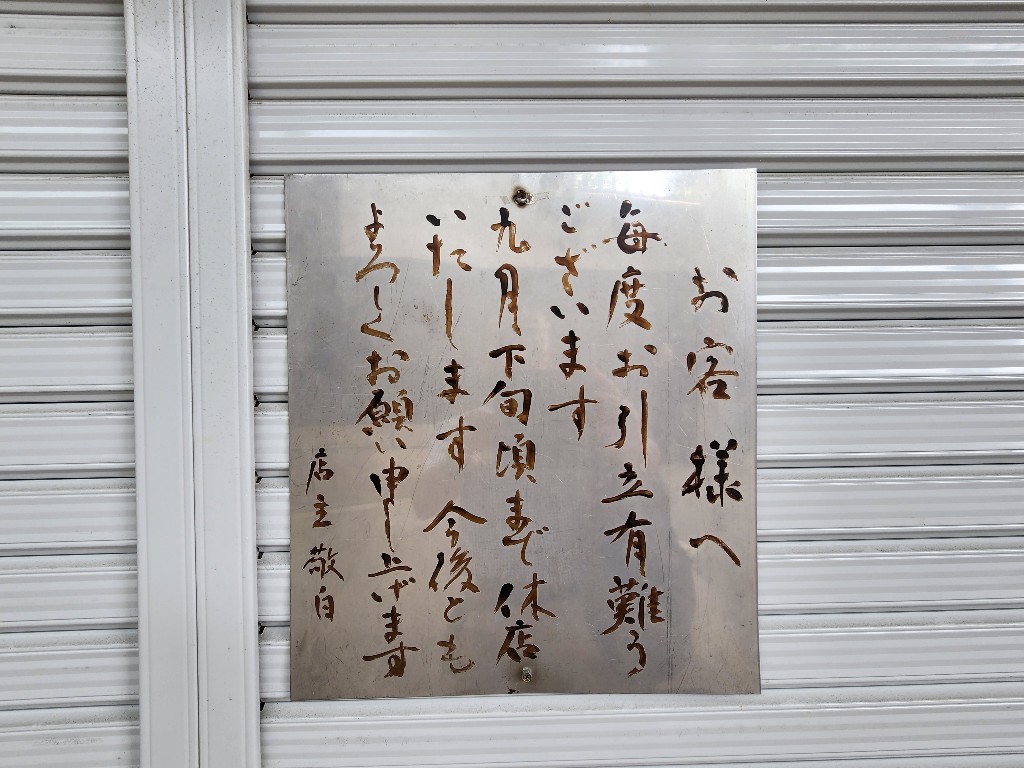 お客様へ
毎度お引立有難う
ございます
九月下旬頃まで休店
いたします 今後とも
よろしくお願い申し上げます
店主敬白